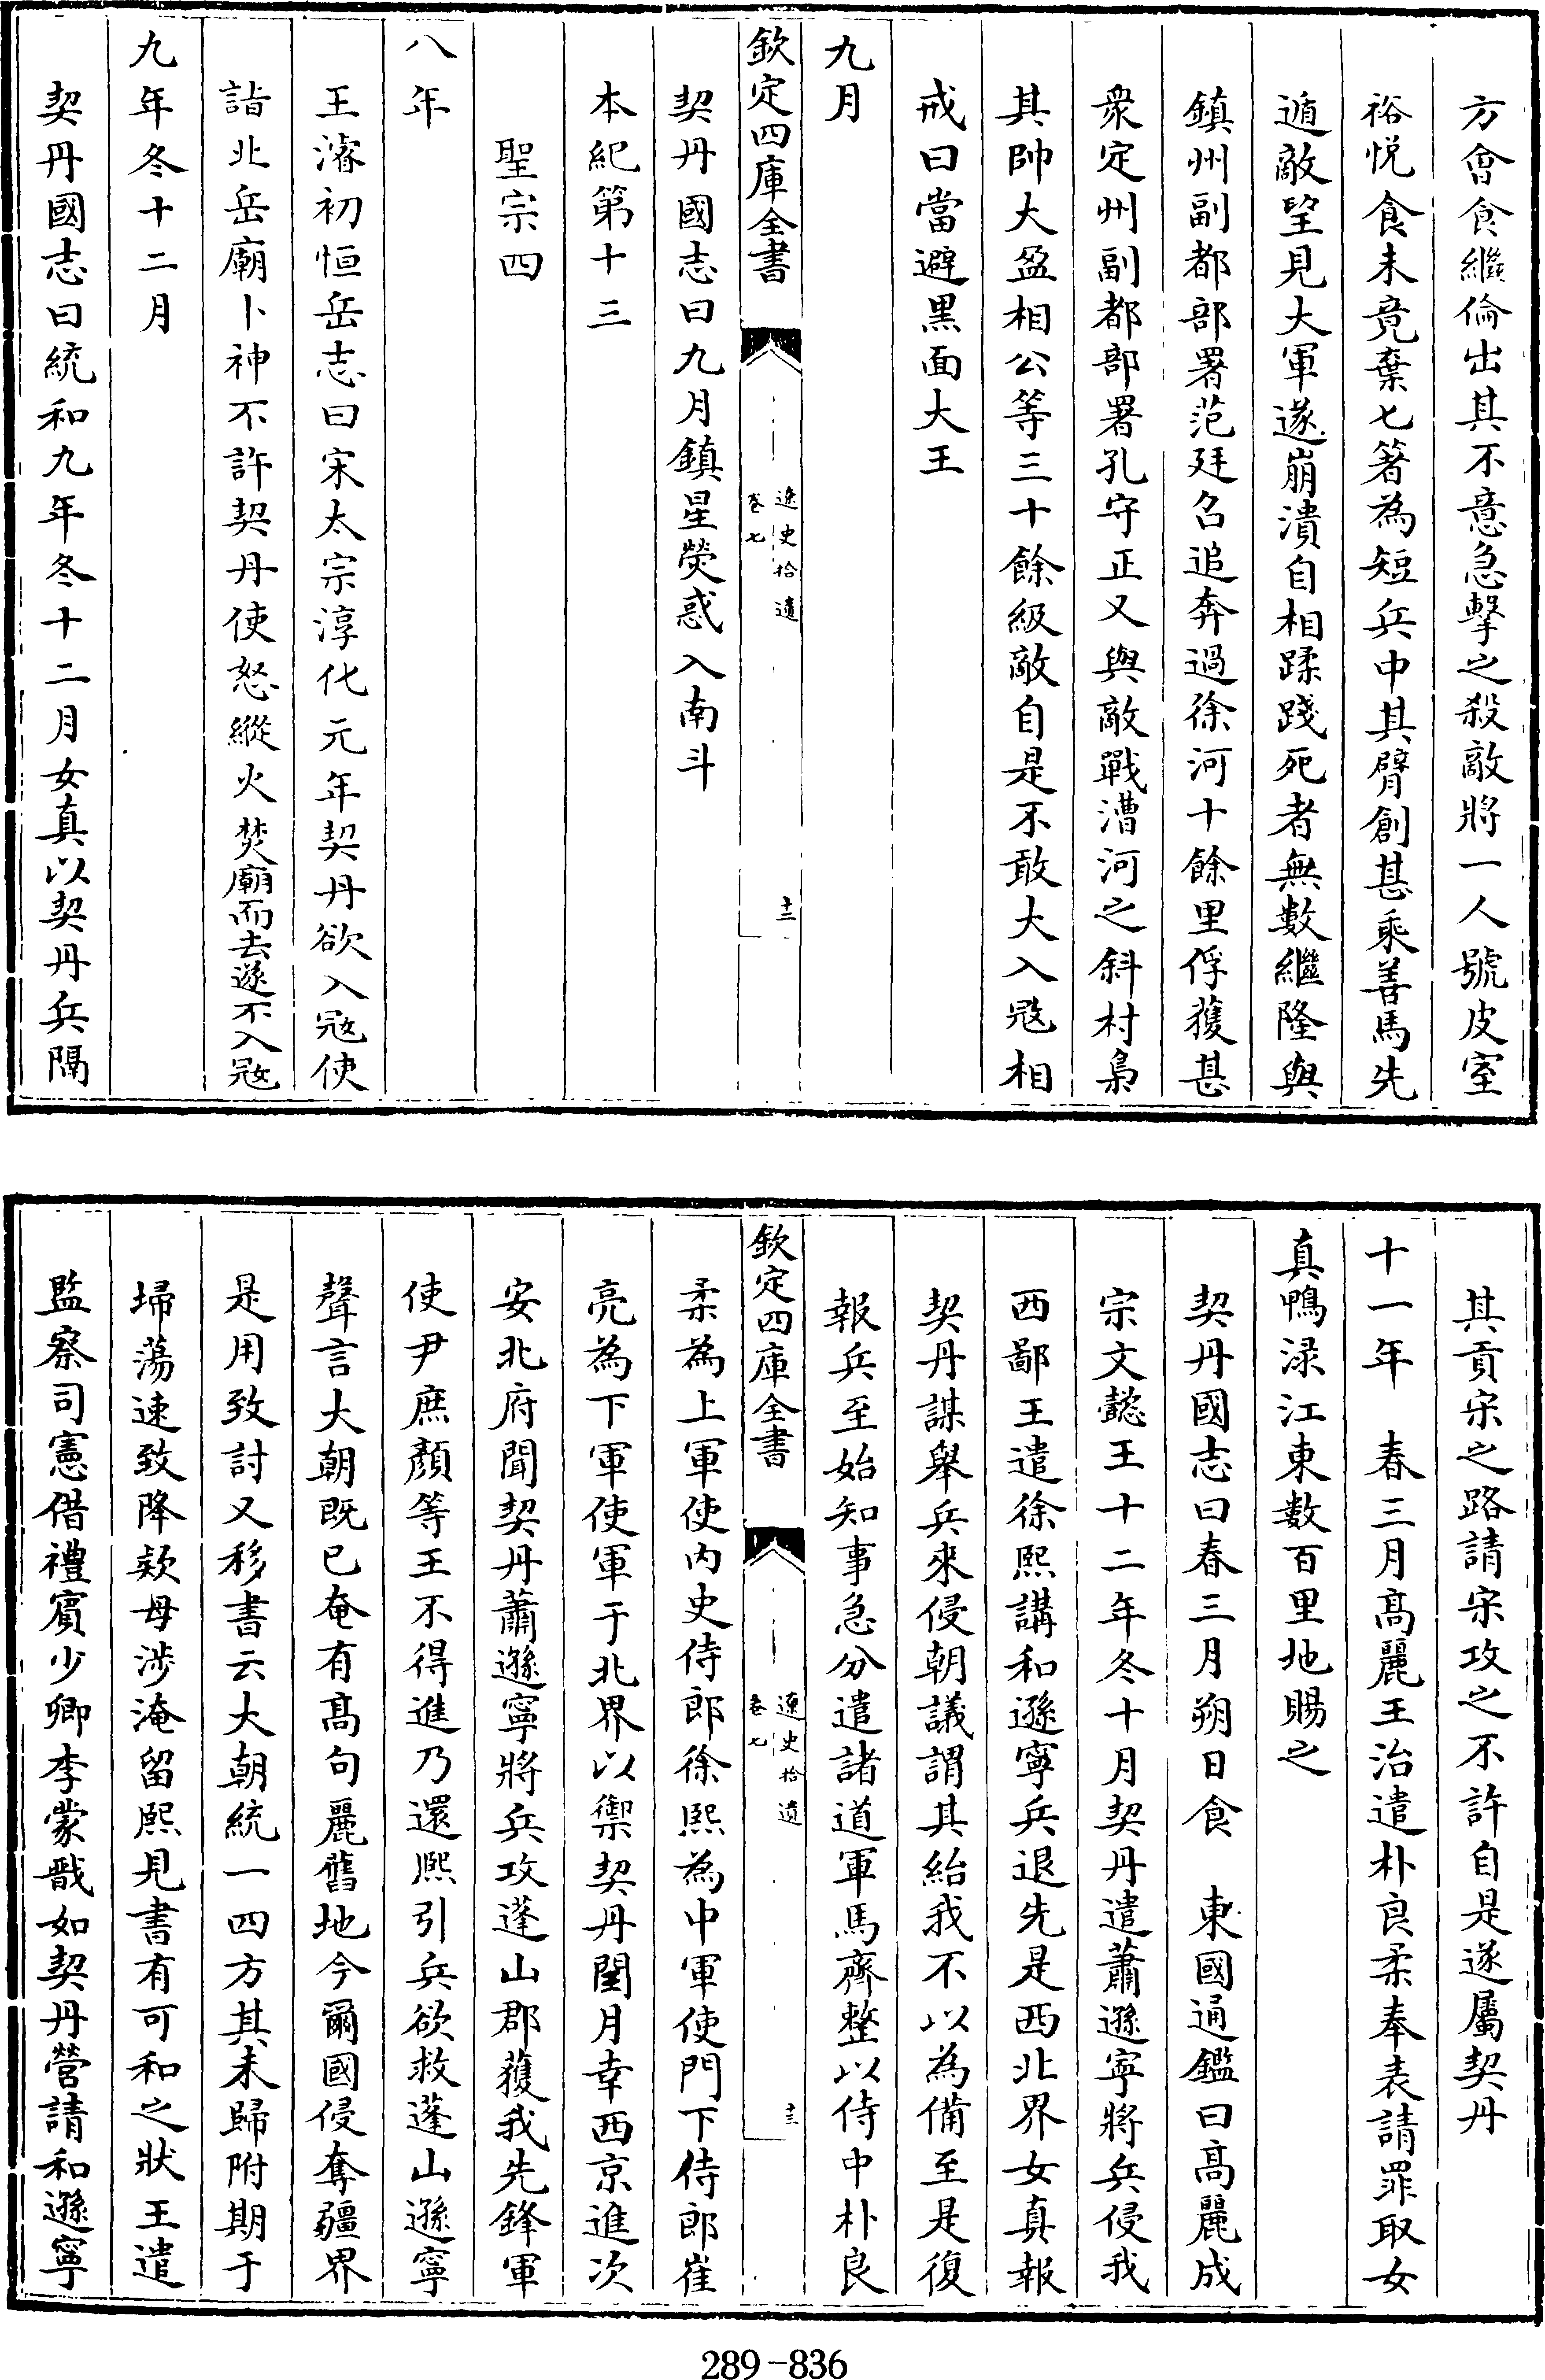 方會食繼倫出其不意急擊之殺敵將一人號皮室
裕悅食未竟棄匕箸為短兵中其臂創甚乘善馬先
遁敵望見大軍遂崩潰自相蹂踐死者無數繼隆與
鎮州副都部署范廷召追奔過徐河十餘里俘獲甚
衆定州副都部署孔守正又與敵戰漕河之斜村梟
其帥大盈相公等三十餘級敵自是不敢大入冦相
戒曰當避黑面大王
九月
欽定四庫全書
遼史拾遺
卷七
十二
契丹國志曰九月鎮星熒惑入南斗
本紀第十三
聖宗四
八年
王濬初恒岳志曰宋太宗淳化元年契丹欲入冦使
詣北岳廟卜神不許契丹使怒縱火焚廟而去遂不入冦
九年冬十二月
契丹國志曰統和九年冬十二月女真以契丹兵隔
其貢宋之路請宋攻之不許自是遂屬契丹
十一年 春三月髙麗王治遣朴良柔奉表請罪取女
真鴨渌江東數百里地賜之
契丹國志曰春三月朔日食 東國通鑑曰髙麗成
宗文懿王十二年冬十月契丹遣蕭遜寧將兵侵我
西鄙王遣徐熙講和遜寧兵退先是西北界女真報
契丹謀舉兵來侵朝議謂其紿我不以為備至是復
報兵至始知事急分遣諸道軍馬齊整以侍中朴良
欽定四庫全書
遼史拾遺
卷七
十三
柔為上軍使内史侍郎徐熙為中軍使門下侍郎崔
亮為下軍使軍于北界以禦契丹閏月幸西京進次
安北府聞契丹蕭遜寧將兵攻蓬山郡獲我先鋒軍
使尹庶顏等王不得進乃還熈引兵欲救蓬山遜寧
聲言大朝既已奄有髙句麗舊地今爾國侵奪疆界
是用致討又移書云大朝統一四方其未歸附期于
埽蕩速致降欵毋涉淹留熙見書有可和之狀王遣
監察司憲借禮賓少卿李蒙戩如契丹營請和遜寧
289-836